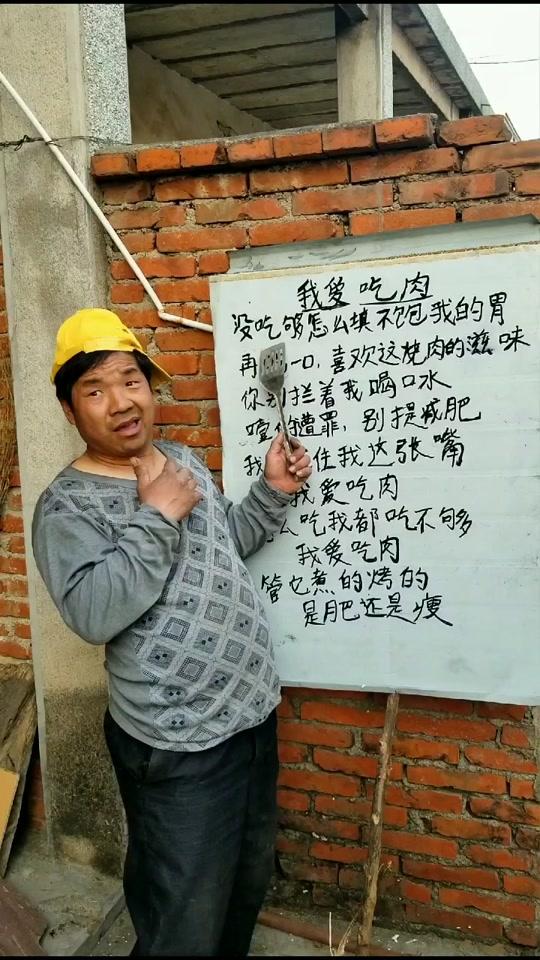 我爱吃肉
没吃够怎么填不饱我的胃
再 一口,喜欢这炖肉的滋味
你别拦着我喝口水
噎 遭罪,别提减肥
我 住我这张嘴
我爱吃肉
么吃我都吃不够
我爱吃肉
管它煮的烤的
是肥还是瘦